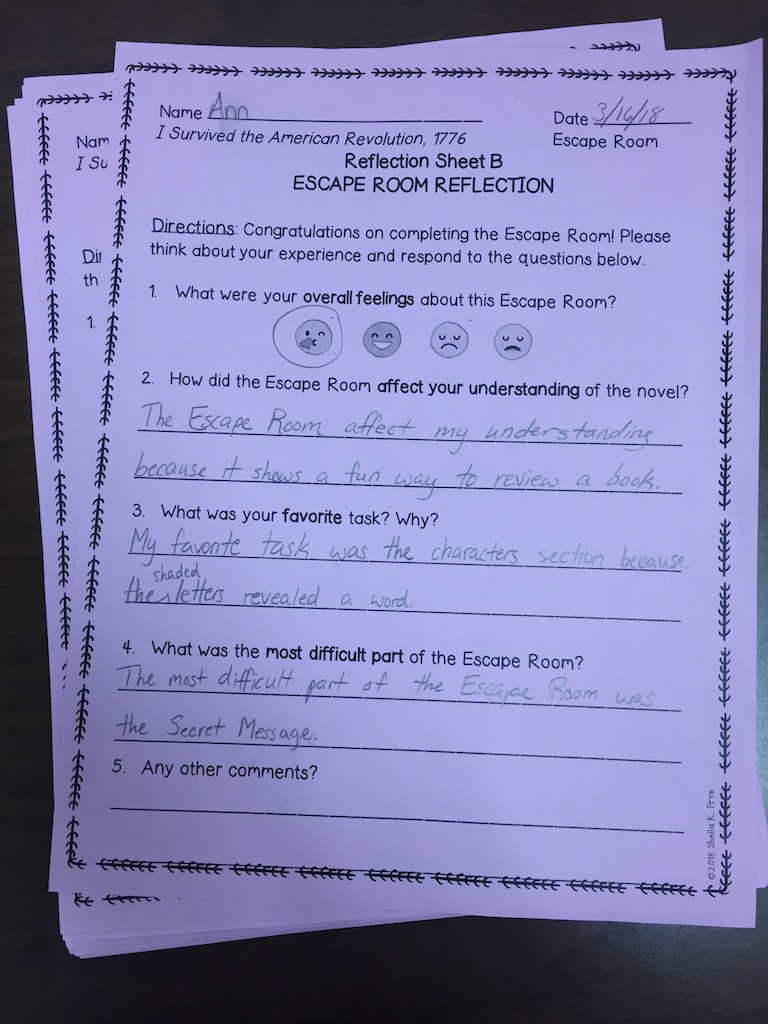 Name Ann
Date 3/16/18
I Survived the American Revolution, 1776
Escape Room
Reflection Sheet B
ESCAPE ROOM REFLECTION
Directions: Congratulations on completing the Escape Room! Please
think about your experience and respond to the questions below.
1. What were your overall feelings about this Escape Room?
2. How did the Escape Room affect your understanding of the novel?
The Escape Room affect my understanding
because it shows a fun way to review a book.
3. What was your favorite task? Why?
My favorite task was the characters section because
shaded
the letters revealed a word.
4. What was the most difficult part of the Escape Room?
The most difficult part of the Escape Room was
the Secret Message.
5. Any other comments?
©2018 Sheila K. Frye
Nam
I Su
Dir
th
1.